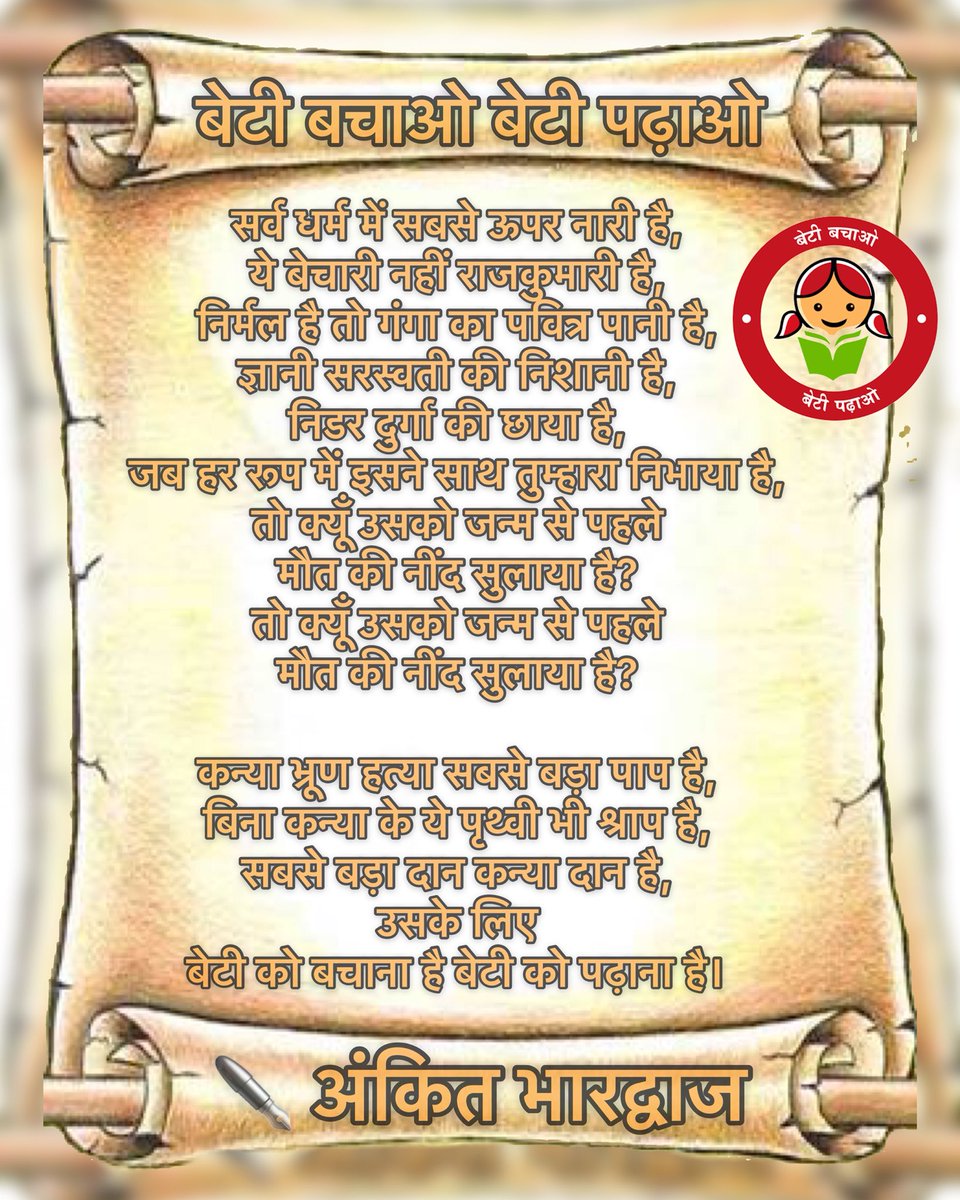 बेटी बचाओ बेटी पढ़ाओ
सर्व धर्म में सबसे ऊपर नारी है,
ये बेचारी नहीं राजकुमारी है,
निर्मल है तो गंगा का पवित्र पानी है,
ज्ञानी सरस्वती की निशानी है,
निडर दुर्गा की छाया है,
जब हर रूप में इसने साथ तुम्हारा निभाया है,
तो क्यूँ उसको जन्म से पहले
मौत की नींद सुलाया है?
तो क्यूँ उसको जन्म से पहले
मौत की नींद सुलाया है?
कन्या भ्रूण हत्या सबसे बड़ा पाप है,
बिना कन्या के ये पृथ्वी भी श्राप है,
सबसे बड़ा दान कन्या दान है,
उसके लिए
बेटी को बचाना है बेटी को पढ़ाना है।
अंकित भारद्वाज
बेटी बचाओ
बेटी पढ़ाओ